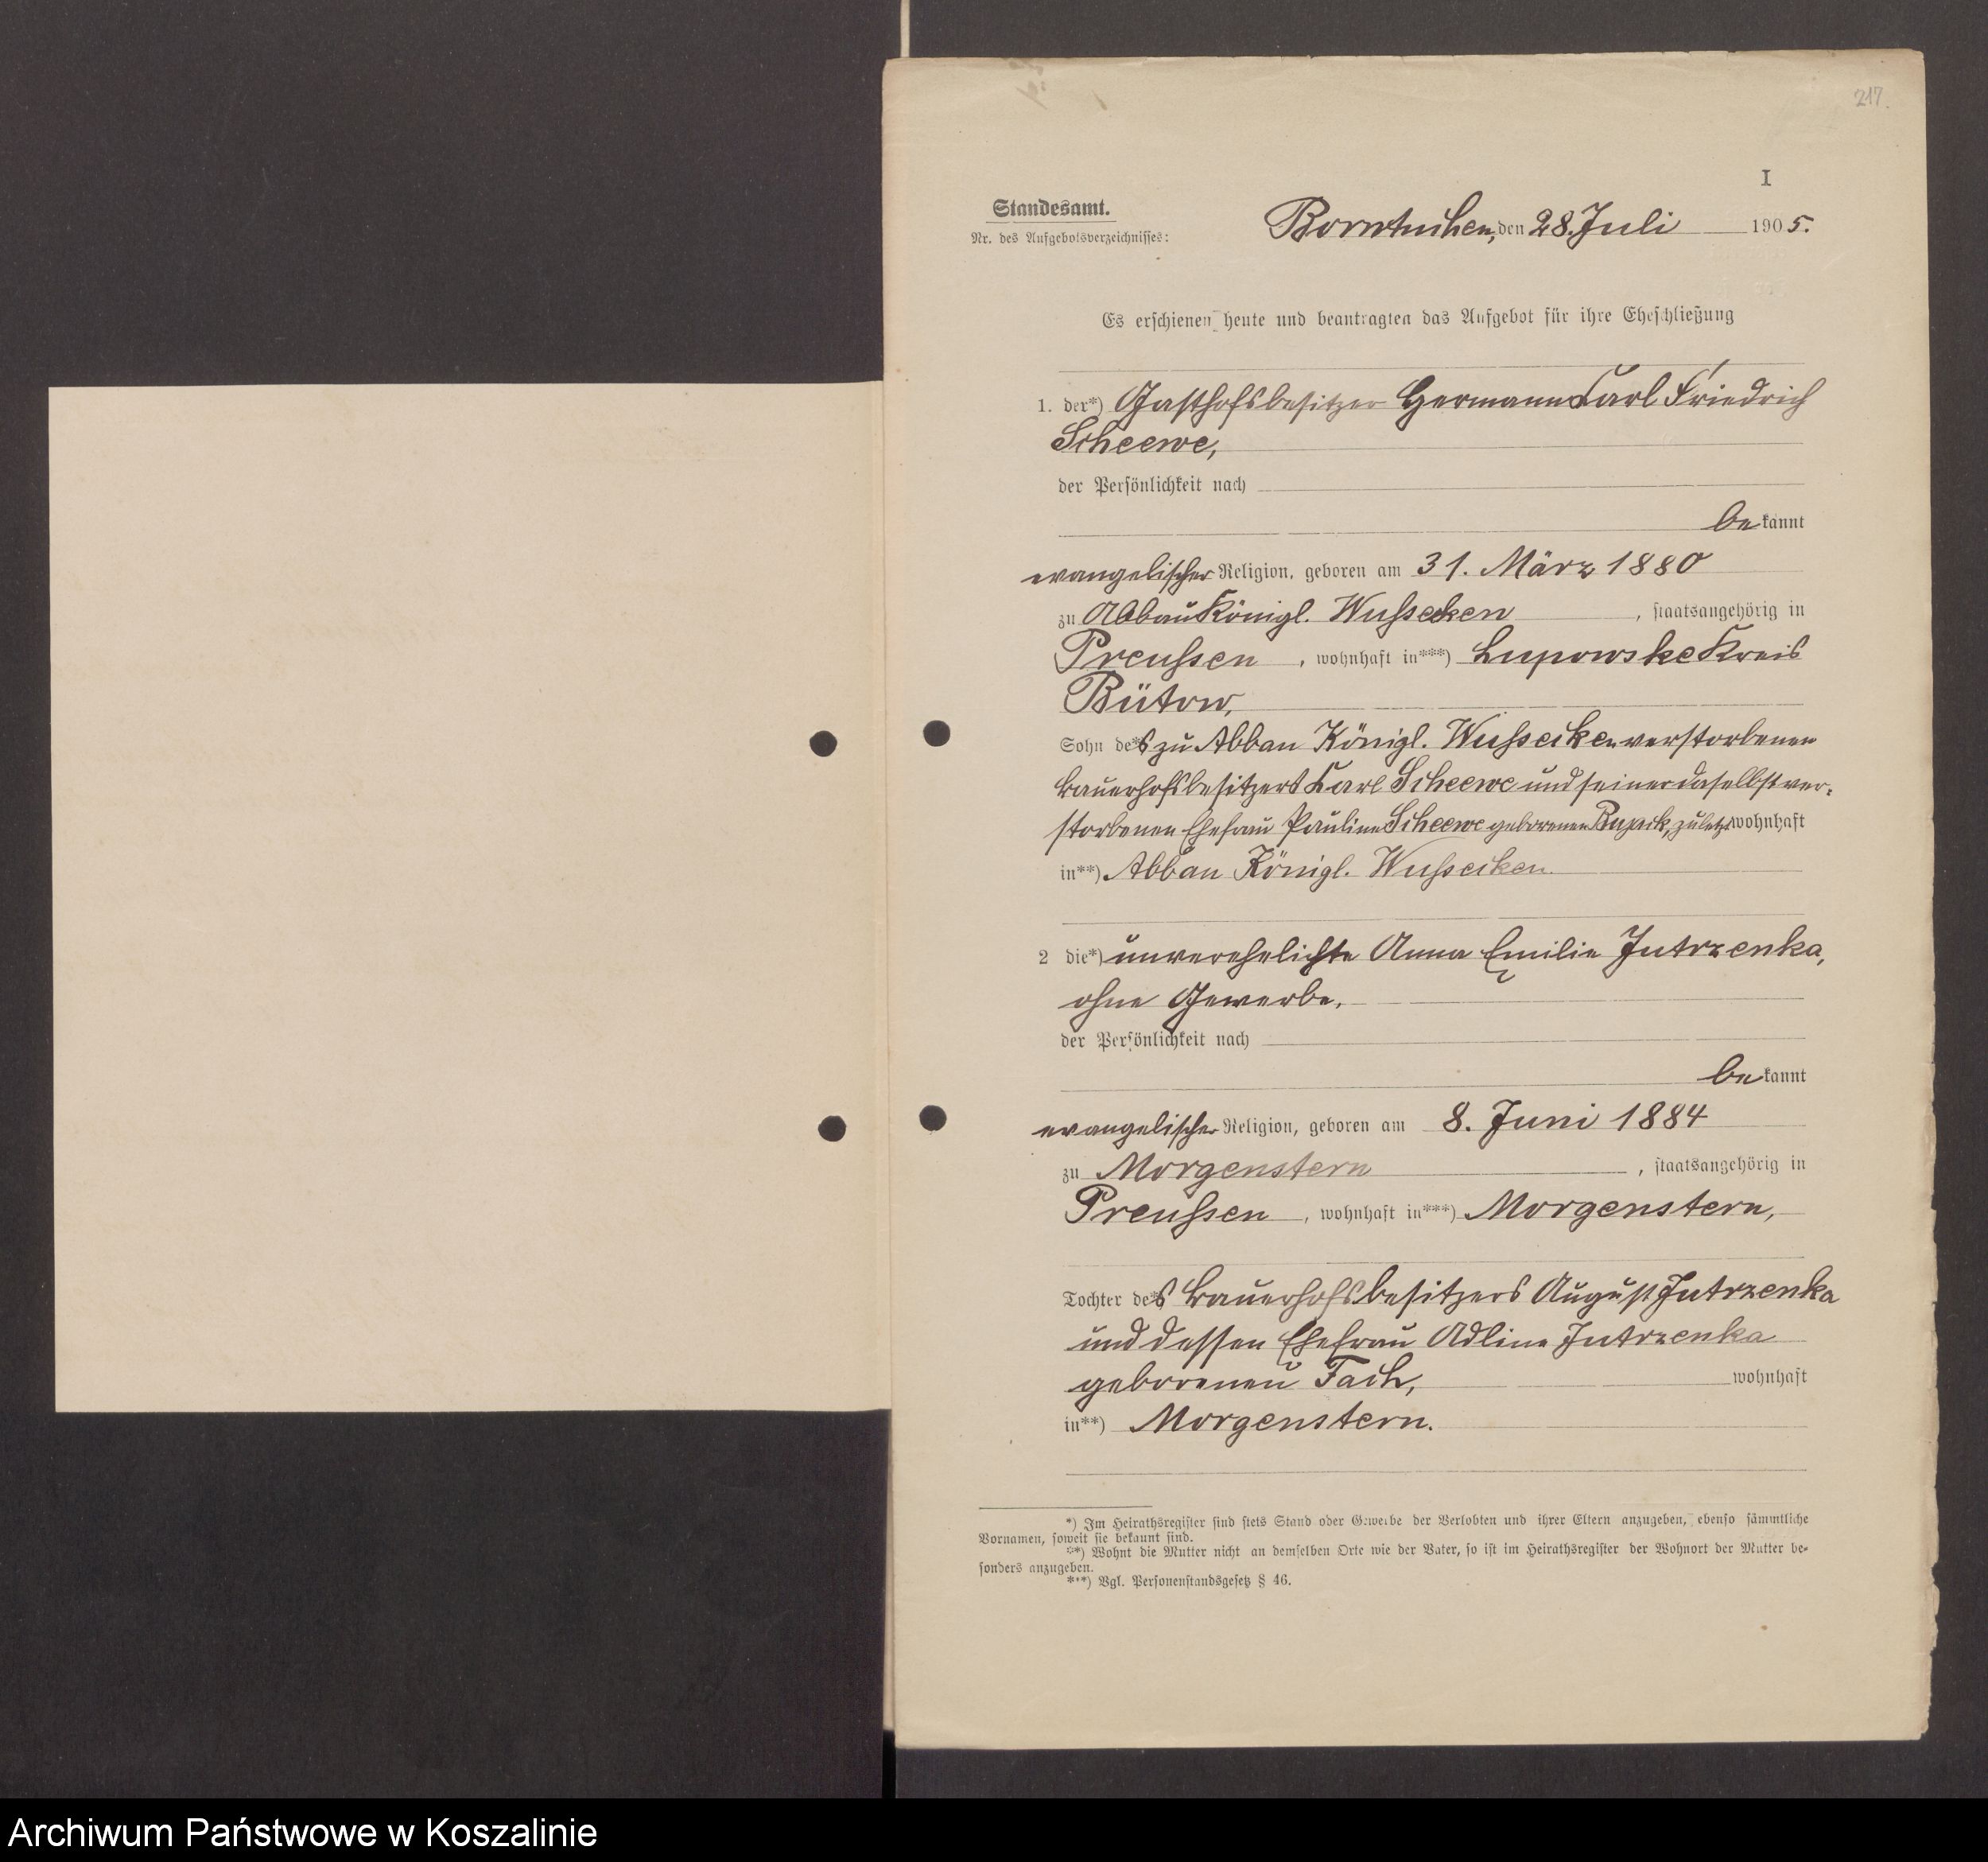 217.
I
Standesamt.
Nr. des Aufgebotsverzeichnisses:
Borntuchen, den 28. Juli 1905.
Es erschienen heute und beantragten das Aufgebot für ihre Eheschließung
1. der*) Gasthofsbesitzer Hermann Carl Friedrich
Scheewe,
der Persönlichkeit nach
bekannt
evangelischer Religion, geboren am 31. März 1880
zu Abbau Königl. Wussecken, staatsangehörig in
Preußen, wohnhaft in***) Lupowske Kreis
Bütow,
Sohn des*) zu Abbau Königl. Wussecken verstorbenen
Bauerhofsbesitzers Carl Scheewe und seiner daselbst ver-
storbenen Ehefrau Pauline Scheewe geborenen zuletzt wohnhaft
in**) Abbau Königl. Wussecken.
2 die*) unverehelichte Anna Emilie Jutrzenka,
ohne Gewerbe,
der Persönlichkeit nach
bekannt
evangelischer Religion, geboren am 8. Juni 1884
zu Morgenstern, staatsangehörig in
Preußen, wohnhaft in***) Morgenstern,
Tochter des*) Bauerhofsbesitzers August Jutrzenka
und dessen Ehefrau Adline Jutrzenka
geborenen Fach, wohnhaft
in**) Morgenstern.
*) Im Heirathsregister sind stets Stand oder Gewerbe der Verlobten und ihrer Eltern anzugeben, ebenso sämmtliche
Vornamen, soweit sie bekannt sind.
**) Wohnt die Mutter nicht an demselben Orte wie der Vater, so ist im Heirathsregister der Wohnort der Mutter be-
sonders anzugeben.
***) Vgl. Personenstandsgesetz § 46.
Archiwum Państwowe w Koszalinie